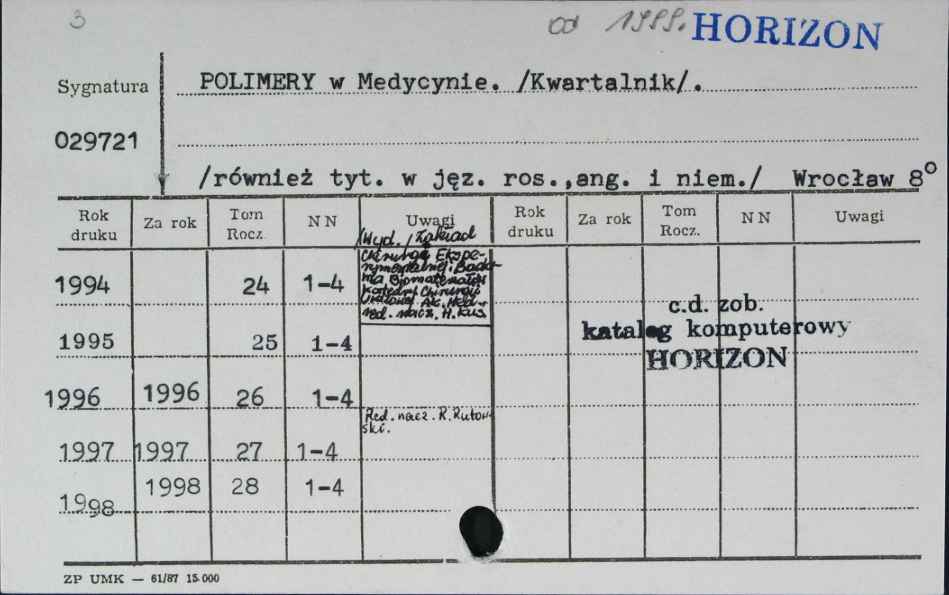 3
od 1999. HORIZON
Sygnatura POLIMERY w Medycynie. /Kwartalnik/.
029721
/również tyt. w jęz. ros.,ang. i niem./ Wrocław 8°
Rok druku Za rok Tom Rocz. NN Uwagi Rok druku Za rok Tom Rocz. NN Uwagi
/Wyd./ Zakład
Chirurgii Ekspe-
rymentalnej i Bada-
nia Biomateriałów
Katedry Chirurgii
Urazowej Ak. Med.-
red. nacz. H. Kuś
1994 24 1-4
c.d. zob.
katalog komputerowy
HORIZON
1995 25 1-4
1996 1996 26 1-4
Red. nacz. R. Rutow-
ski.
1997 1997 27 1-4
1998 1998 28 1-4
ZP UMK — 61/87 15.000